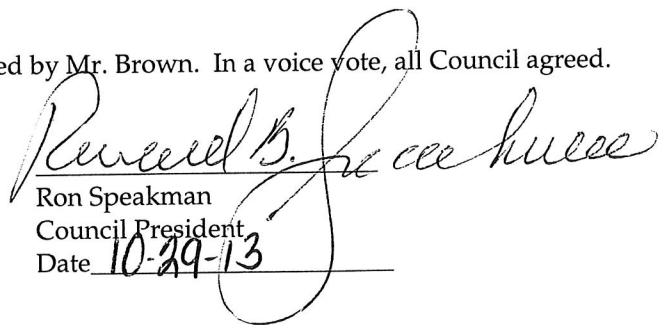 ed by Mr. Brown. In a voice vote, all Council agreed.
B.
Ron Speakman
Council President
Date 10-29-13